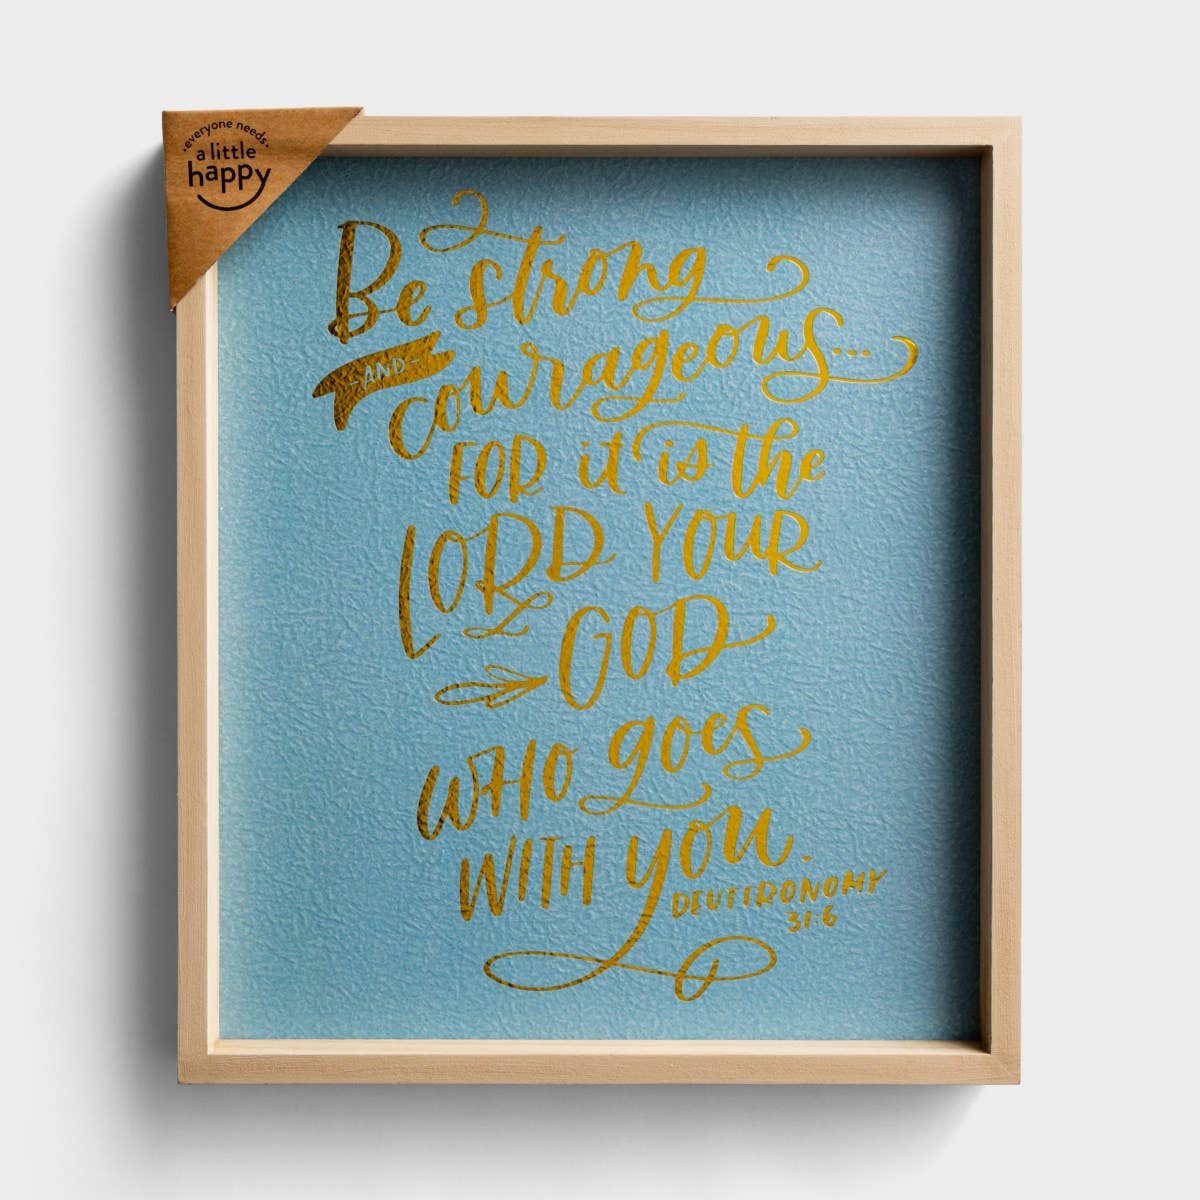 everyone needs
a little
happy
Be strong
AND
courageous...
FOR it is the
LORD YOUR
GOD
WHO goes
WITH you.
DEUTERONOMY
31:6